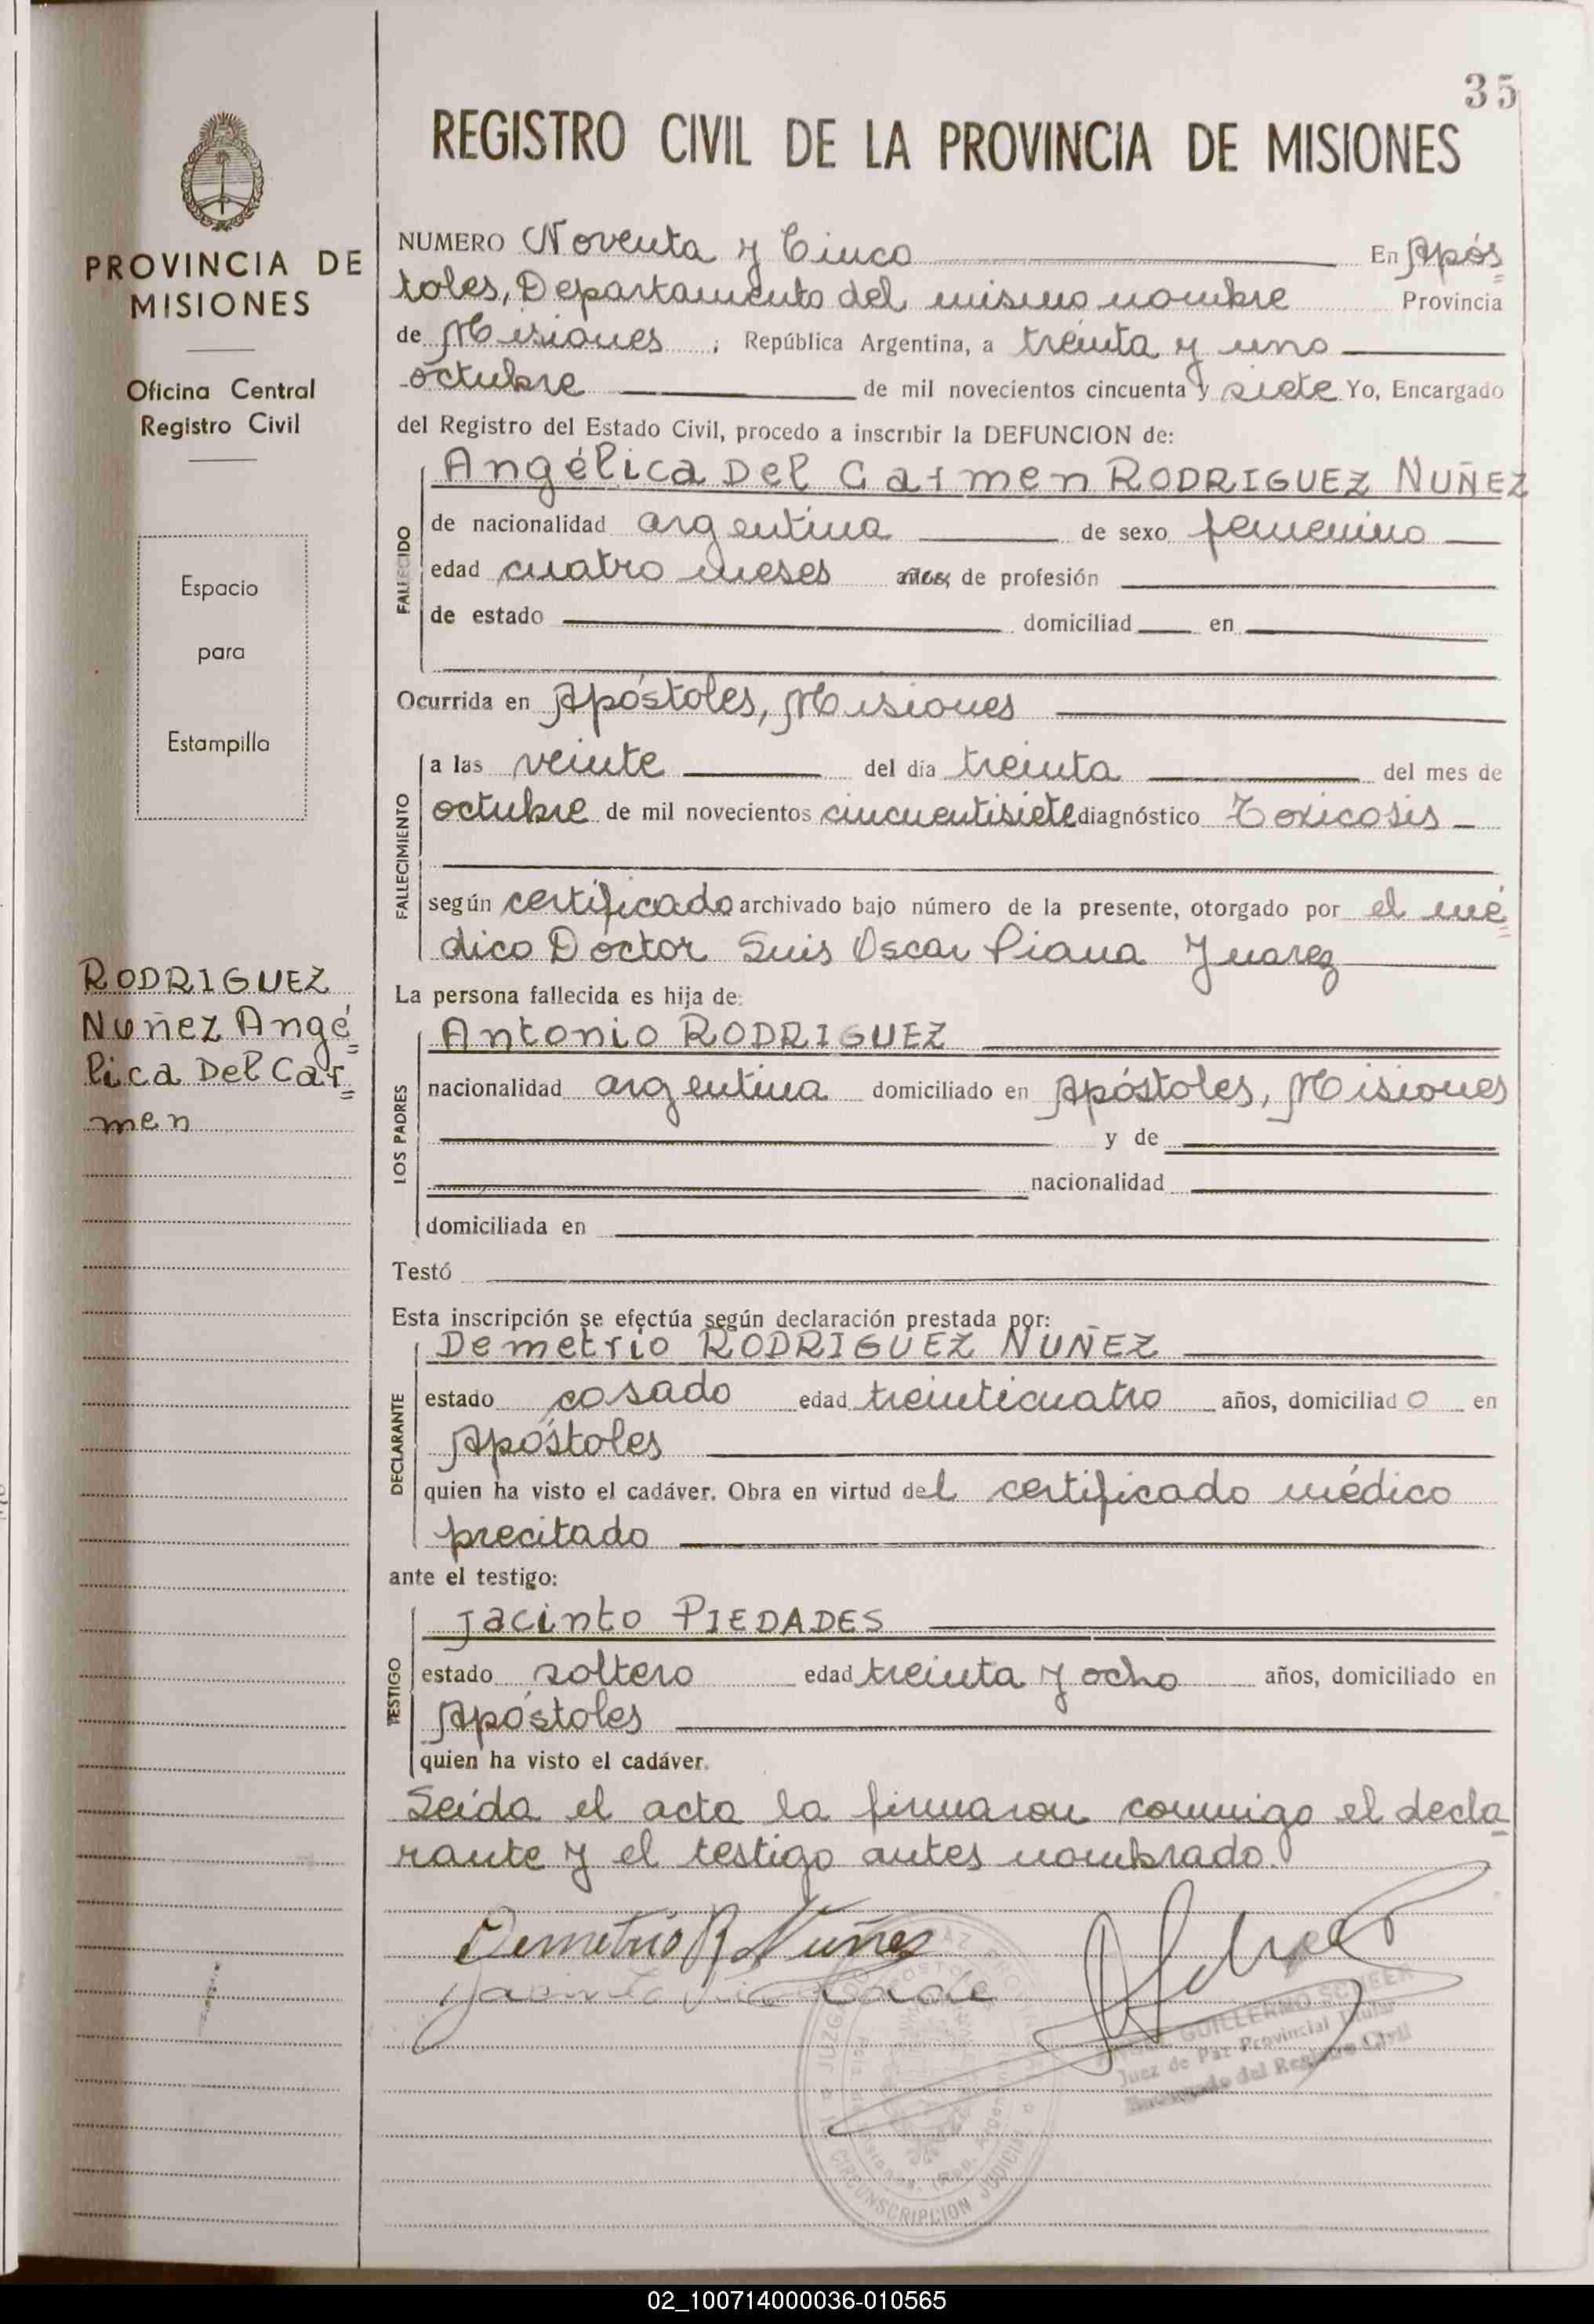 35
REGISTRO CIVIL DE LA PROVINCIA DE MISIONES
PROVINCIA DE
MISIONES
Oficina Central
Registro Civil
Espacio
para
Estampilla
RODRIGUEZ
Nuñez Angé=
lica Del Car=
men
NUMERO Noventa y Cinco En Após=
toles, Departamento del mismo nombre Provincia
de Misiones ; República Argentina, a treinta y uno
octubre de mil novecientos cincuenta y siete Yo, Encargado
del Registro del Estado Civil, procedo a inscribir la DEFUNCION de:
Angélica Del Carmen RODRIGUEZ NUÑEZ
FALLECIDO
de nacionalidad argentina de sexo femenino
edad cuatro meses años, de profesión
de estado domiciliad en
Ocurrida en Apóstoles, Misiones
FALLECIMIENTO
a las veinte del día treinta del mes de
octubre de mil novecientos cincuentisiete diagnóstico Toxicosis
según certificado archivado bajo número de la presente, otorgado por el mé=
dico Doctor Luis Oscar Piana Juarez
La persona fallecida es hija de:
LOS PADRES
Antonio RODRIGUEZ
nacionalidad argentina domiciliado en Apóstoles, Misiones
y de
nacionalidad
domiciliada en
Testó
Esta inscripción se efectúa según declaración prestada por:
DECLARANTE
Demetrio RODRIGUEZ NUÑEZ
estado casado edad treinticuatro años, domiciliado en
Apóstoles
quien ha visto el cadáver. Obra en virtud del certificado médico
precitado
ante el testigo:
TESTIGO
Jacinto PIEDADES
estado soltero edad treinta y ocho años, domiciliado en
Apóstoles
quien ha visto el cadáver.
Leída el acta la firmaron conmigo el decla-
rante y el testigo antes nombrado.
Demetrio R. Nuñes
GUILLERMO SCHEER
Juez de Paz Provincial Titular
Encargado del Registro Civil
CIRCUNSCRIPCION JUDICIAL
02_100714000036-010565